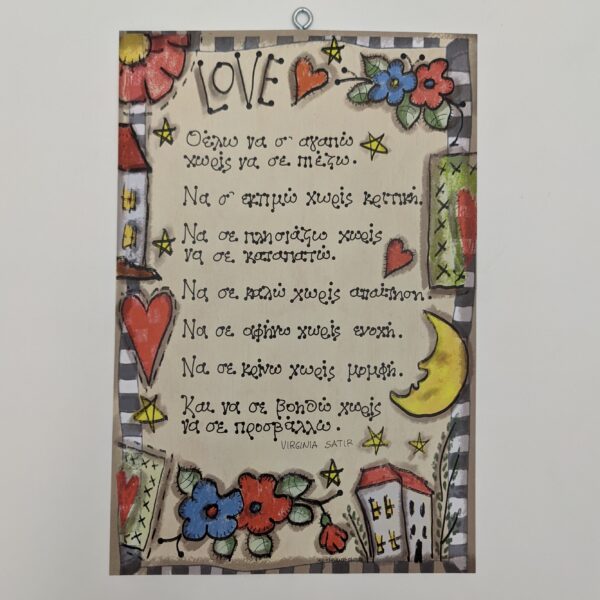 LOVE
Θέλω να σ' αγαπώ
χωρίς να σε πιέζω.
Να σ' εκτιμώ χωρίς κριτική.
Να σε πλησιάζω χωρίς
να σε καταπατώ.
Να σε καλώ χωρίς απαίτηση.
Να σε αφήνω χωρίς ενοχή.
Να σε κρίνω χωρίς μομφή.
Και να σε βοηθώ χωρίς
να σε προσβάλλω.
VIRGINIA SATIR